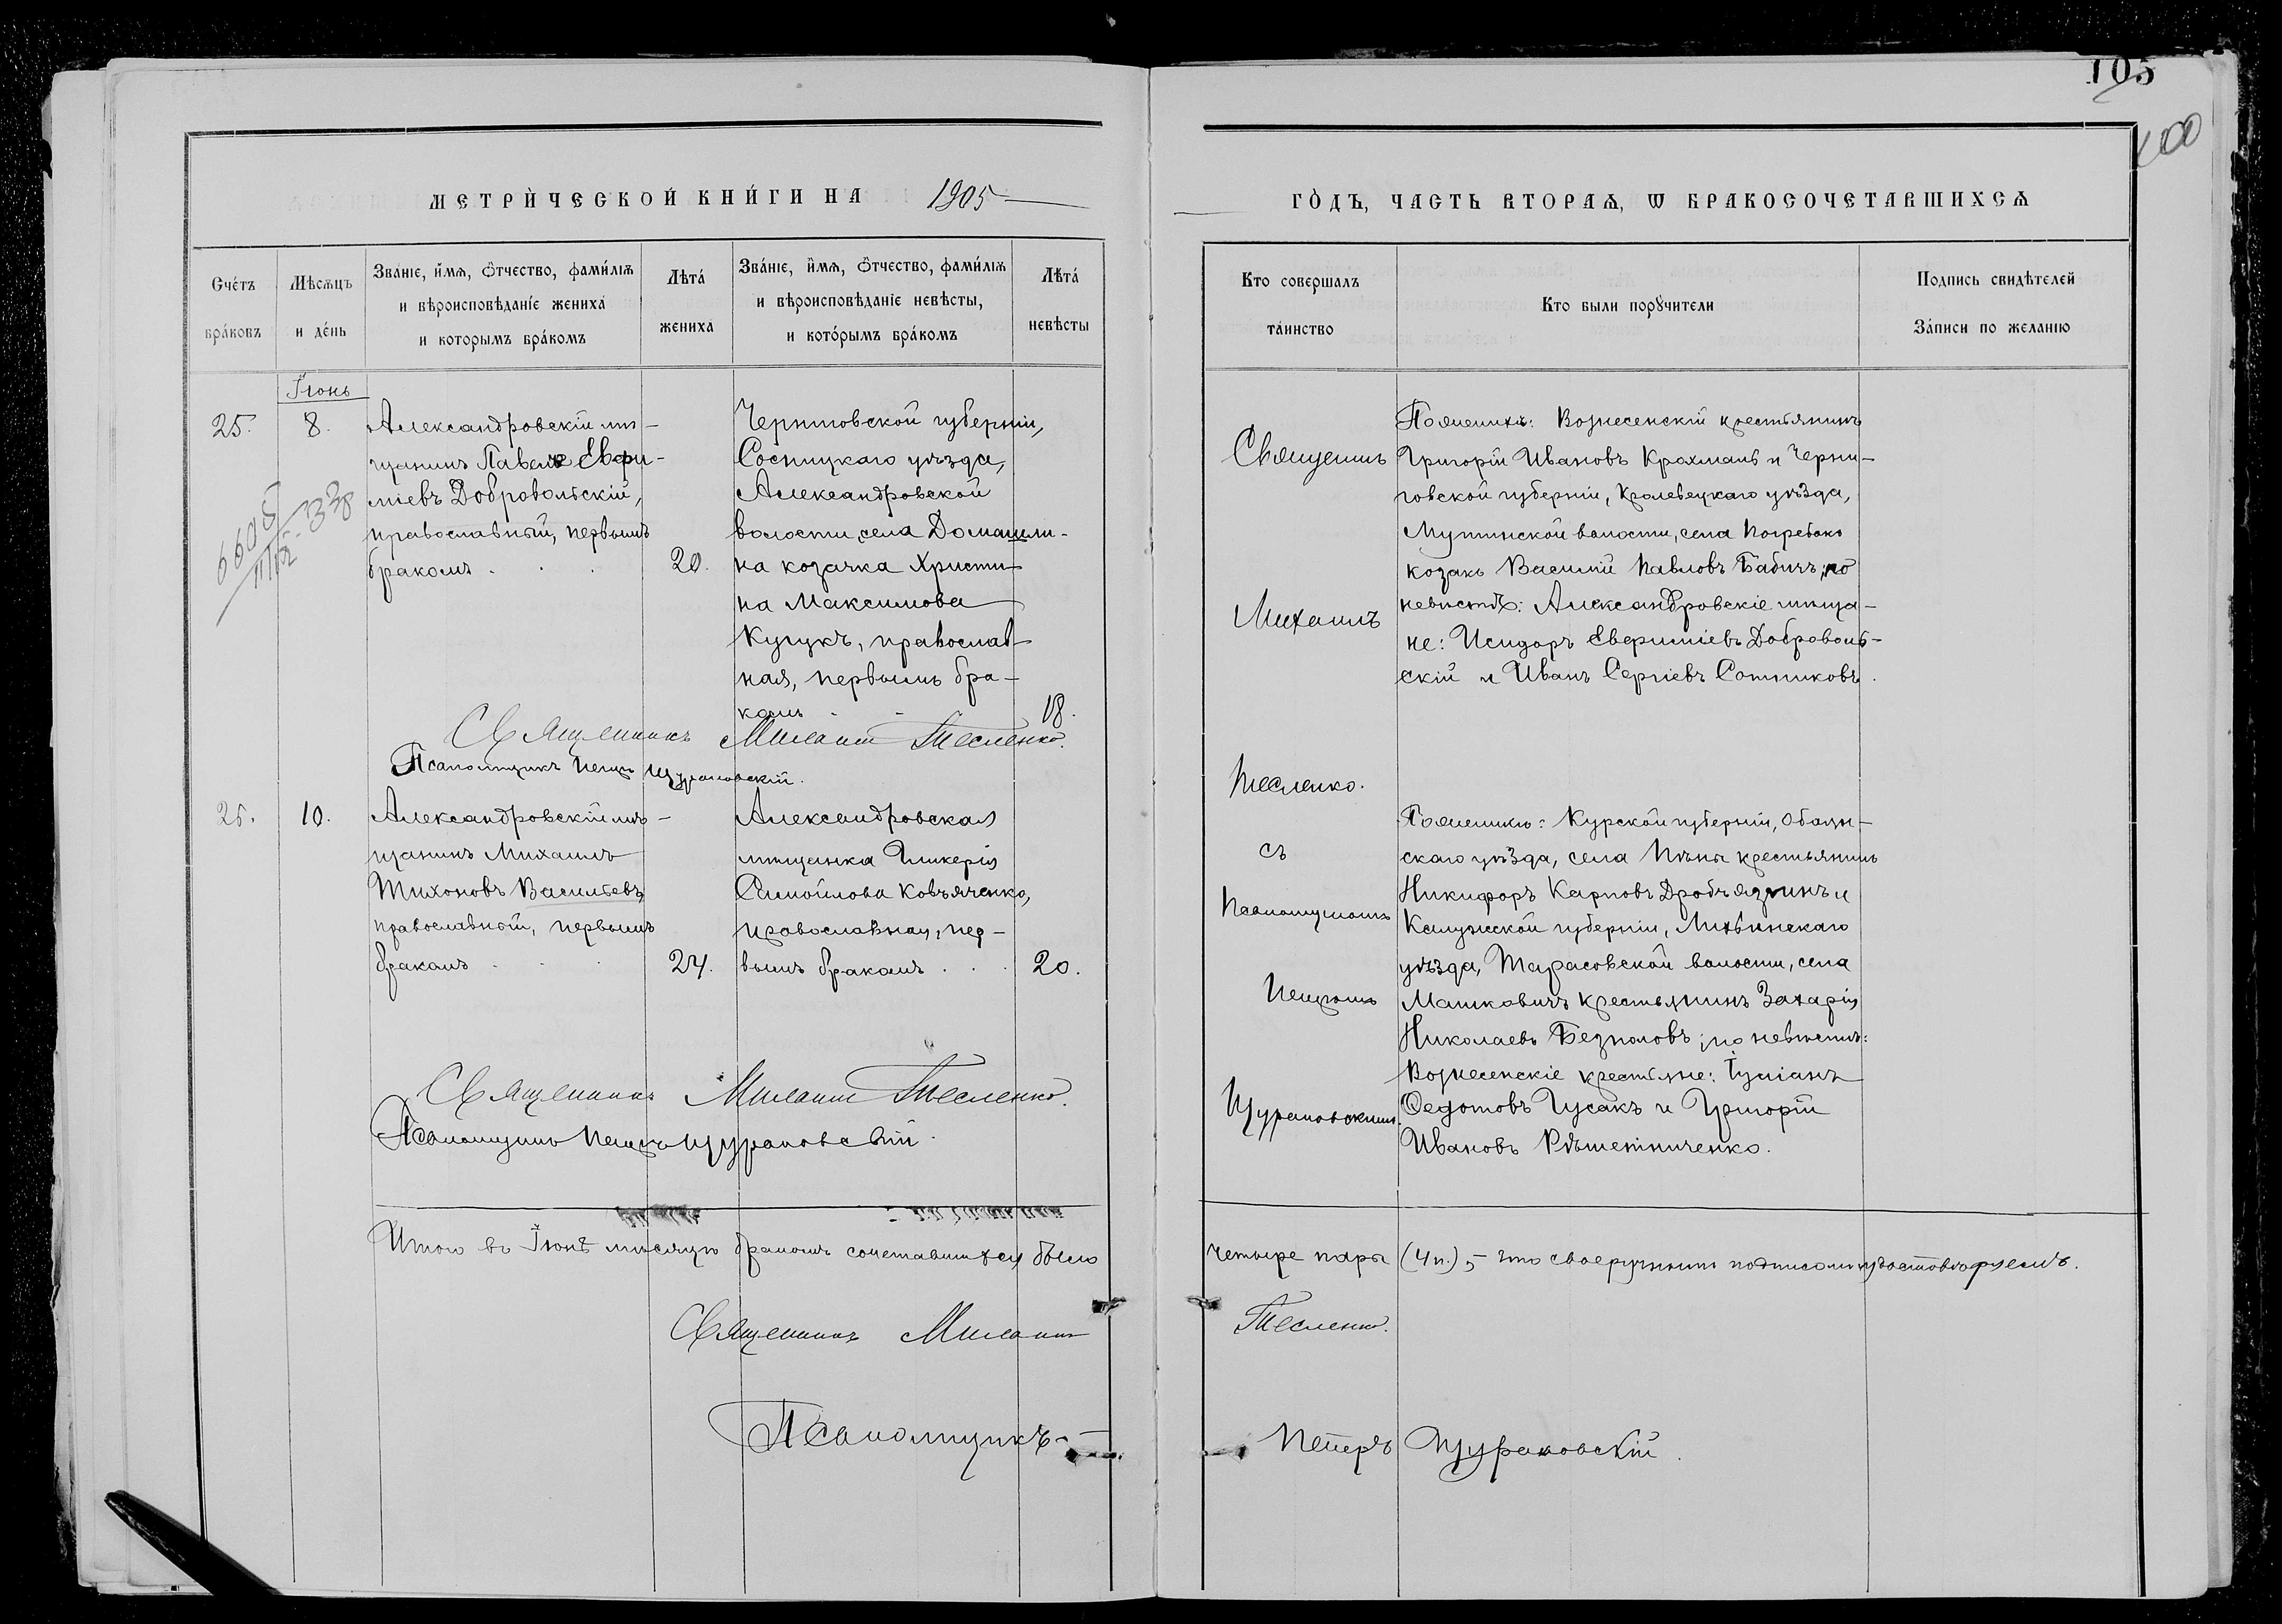 105
100
МЕТРИЧЕСКОЙ КНИГИ НА 1905
ГОДЪ, ЧАСТЬ ВТОРАѦ, Ѡ БРАКОСОЧЕТАВШИХСѦ
Счетъ браковъ
Мѣсѧцъ и день
Званіе, имѧ, ѻтчество, фамиліѧ и вѣроисповѣданіе жениха и которымъ бракомъ
Лѣта жениха
Званіе, имѧ, ѻтчество, фамиліѧ и вѣроисповѣданіе невѣсты, и которымъ бракомъ
Лѣта невѣсты
Кто совершалъ таинство
Кто были порꙋчители
Подпись свидѣтелей Записи по желанію
Іюнь
25.
8.
Александровскій мѣ-
щанинъ Павелъ Евфи-
міевъ Добровольскій,
православный, первымъ
бракомъ . . .
20.
Черниговской губерніи,
Сосницкаго уѣзда,
Александровской
волости, села Домашли-
на козачка Христи-
на Максимова
Куцукъ, православ-
ная, первымъ бра-
комъ - -
18.
Священникъ Михаилъ Тесленко.
Псаломщикъ Петръ Щурановскій.
Священникъ
Михаилъ
Тесленко.
съ
Псаломщикомъ
Петромъ
Щурановскимъ.
По женихѣ: Вознесенскій крестьянинъ
Григорій Ивановъ Крохмаль и Черни-
говской губерніи, Кролевецкаго уѣзда,
Мутинской волости, села Погребокъ
козакъ Василій Павловъ Бабичъ; по
невѣстѣ: Александровскіе мѣща-
не: Исидоръ Евфиміевъ Доброволь-
скій и Иванъ Сергіевъ Сотниковъ.
26.
10.
Александровскій мѣ-
щанинъ Михаилъ
Тихоновъ Васильевъ,
православный, первымъ
бракомъ . . .
24.
Александровская
мѣщанка Гликерія
Самойлова Ковъяченко,
православная, пер-
вымъ бракомъ . . .
20.
По женихѣ: Курской губерніи, Обаян-
скаго уѣзда, села Пѣны крестьянинъ
Никифоръ Карповъ Дробязгинъ и
Калужской губерніи, Лихвинскаго
уѣзда, Тарасовской волости, села
Машковичъ крестьянинъ Захарія
Николаевъ Безполовъ; по невѣстѣ:
Вознесенскіе крестьяне: Іуліанъ
Ѳедотовъ Гусакъ и Григорій
Ивановъ Рѣшетниченко.
Священникъ Михаилъ Тесленко.
Псаломщикъ Петръ Щурановскій.
Итого въ Іюнѣ мѣсяцѣ бракомъ сочетавшихся было четыре пары (4 п.), - что своеручнымъ подписомъ удостовѣряемъ.
Священникъ Михаилъ Тесленко.
Псаломщикъ Петеръ Щурановскій.